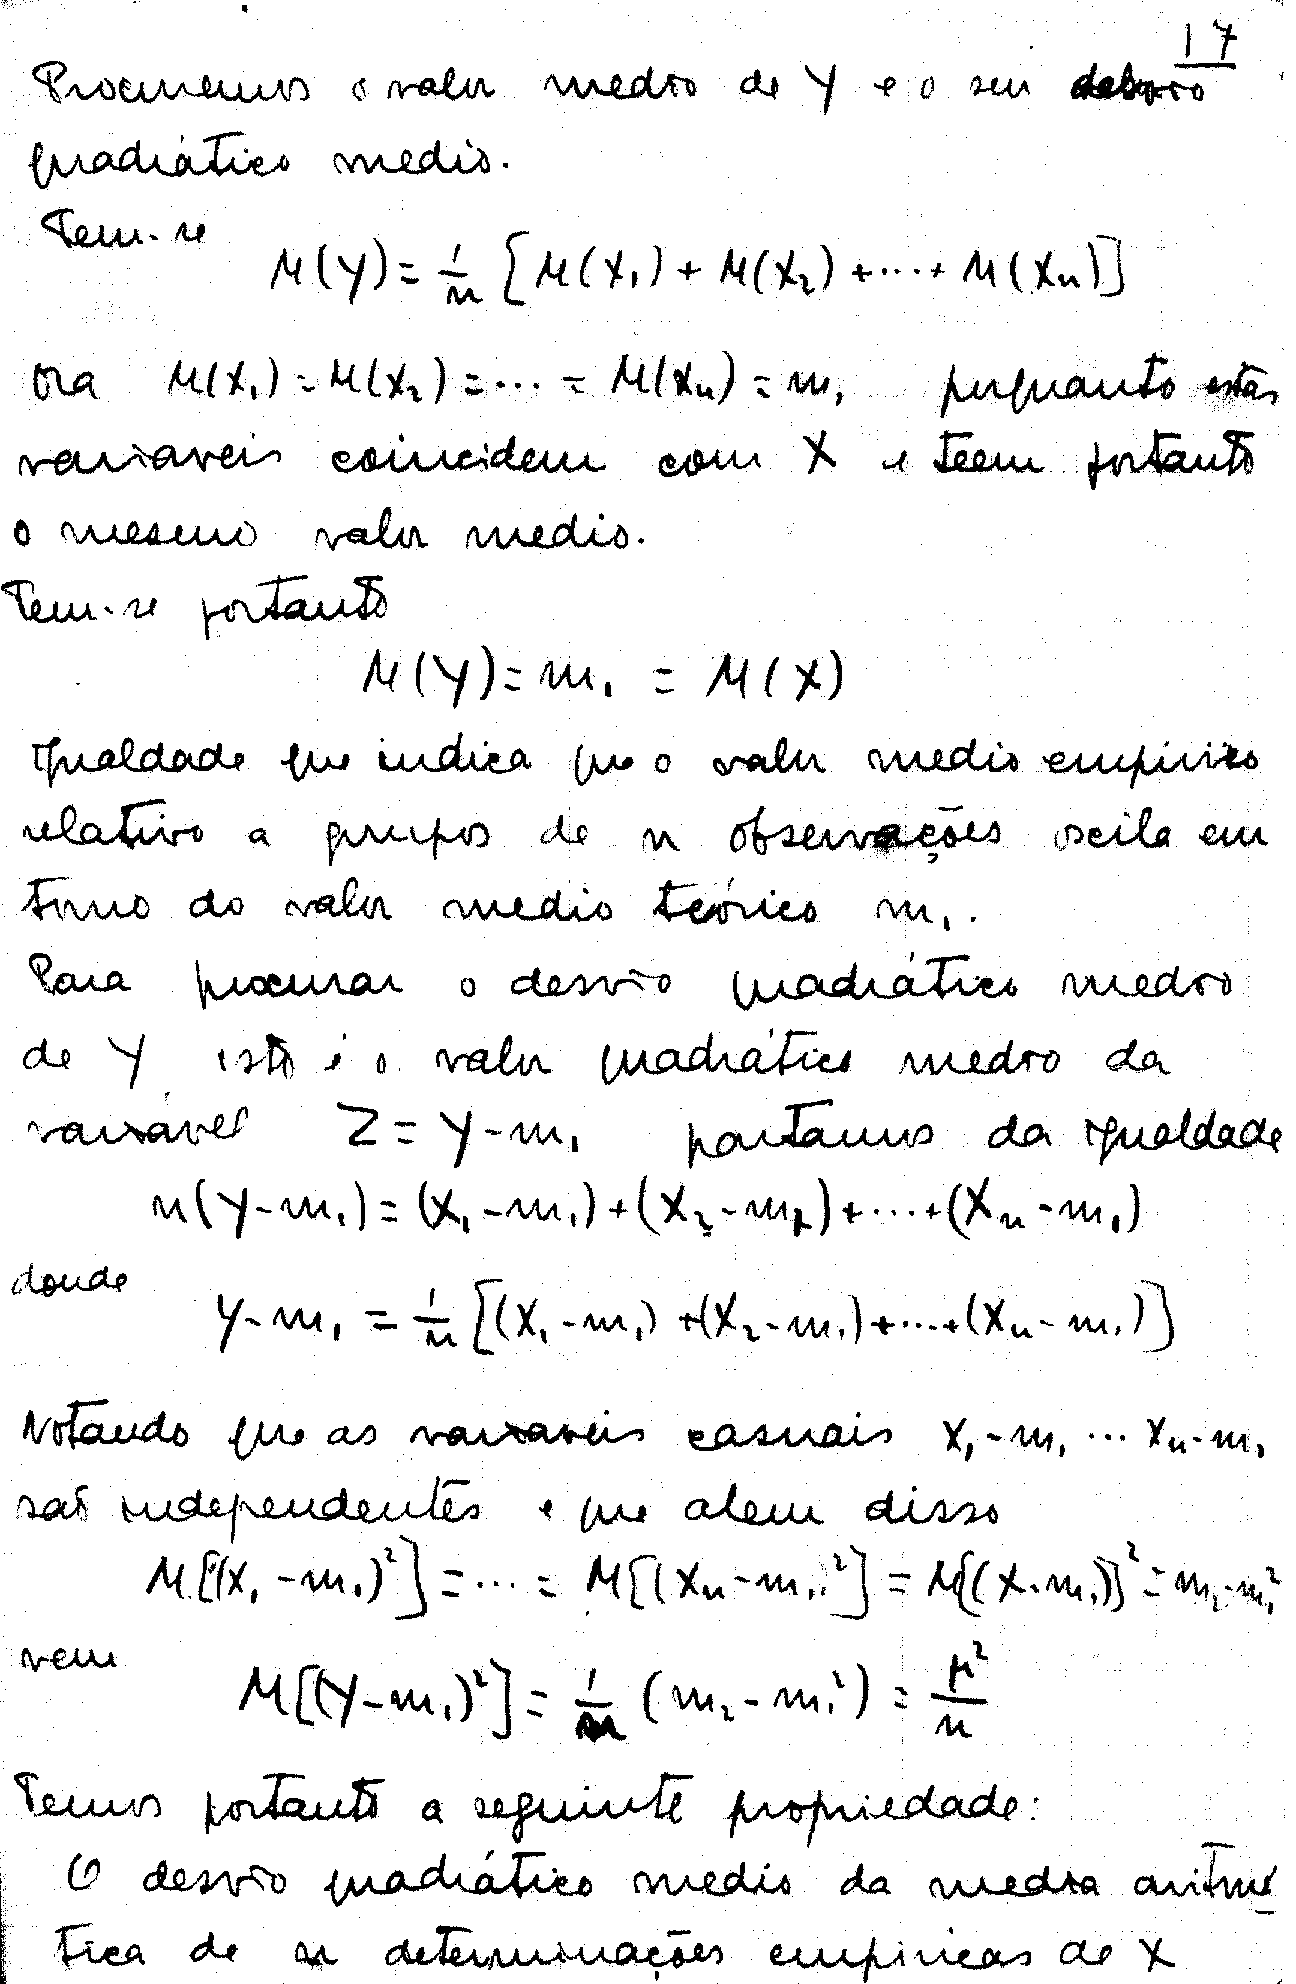 17
Procuremos o valor medio de Y e o seu desvio
quadrático medio.
Tem-se
M(Y) = 1/n [M(X₁) + M(X₂) + ··· + M(Xₙ)]
Ora M(X₁) = M(X₂) = ··· = M(Xₙ) = m₁ porquanto estas
variaveis coincidem com X e teem portanto
o mesmo valor medio.
Tem-se portanto
M(Y) = m₁ = M(X)
Igualdade que indica que o valor medio empirico
relativo a grupos de n observações oscila em
torno do valor medio teórico m₁.
Para procurar o desvio quadrático medio
de Y isto é o valor quadrático medio da
variavel Z = Y - m₁ partamos da igualdade
n(Y - m₁) = (X₁ - m₁) + (X₂ - m₁) + ··· + (Xₙ - m₁)
donde
Y - m₁ = 1/n [(X₁ - m₁) + (X₂ - m₁) + ··· + (Xₙ - m₁)]
Notando que as variaveis casuais X₁ - m₁ ··· Xₙ - m₁
são independentes e que alem disso
M[(X₁ - m₁)²] = ··· = M[(Xₙ - m₁)²] = M[(X - m₁)]² = m₂ - m₁²
vem
M[(Y - m₁)²] = 1/n (m₂ - m₁²) = μ²/n
Temos portanto a seguinte propriedade:
O desvio quadrático medio da media aritmé
tica de n determinações empiricas de X